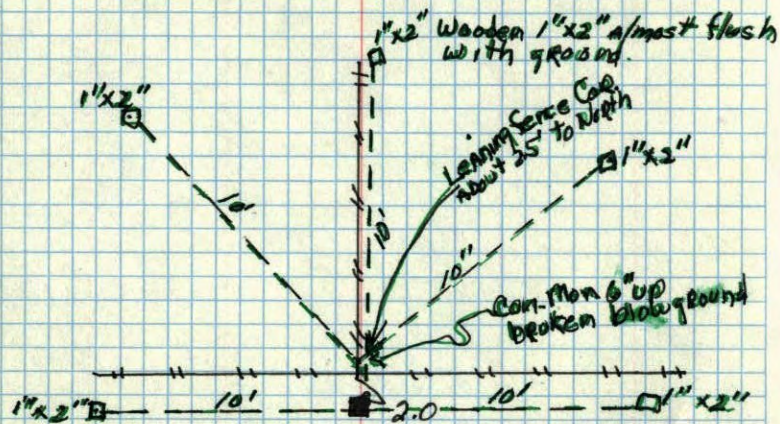 1"x2" Wooden 1"x2" almost flush
with ground.
1"x2"
Leaning Fence Cor.
About 25' to North
1"x2"
10'
10'
10"
Con-Mon 6" up
broken blow ground
1"x2"
10'
2.0
10'
1" x2"